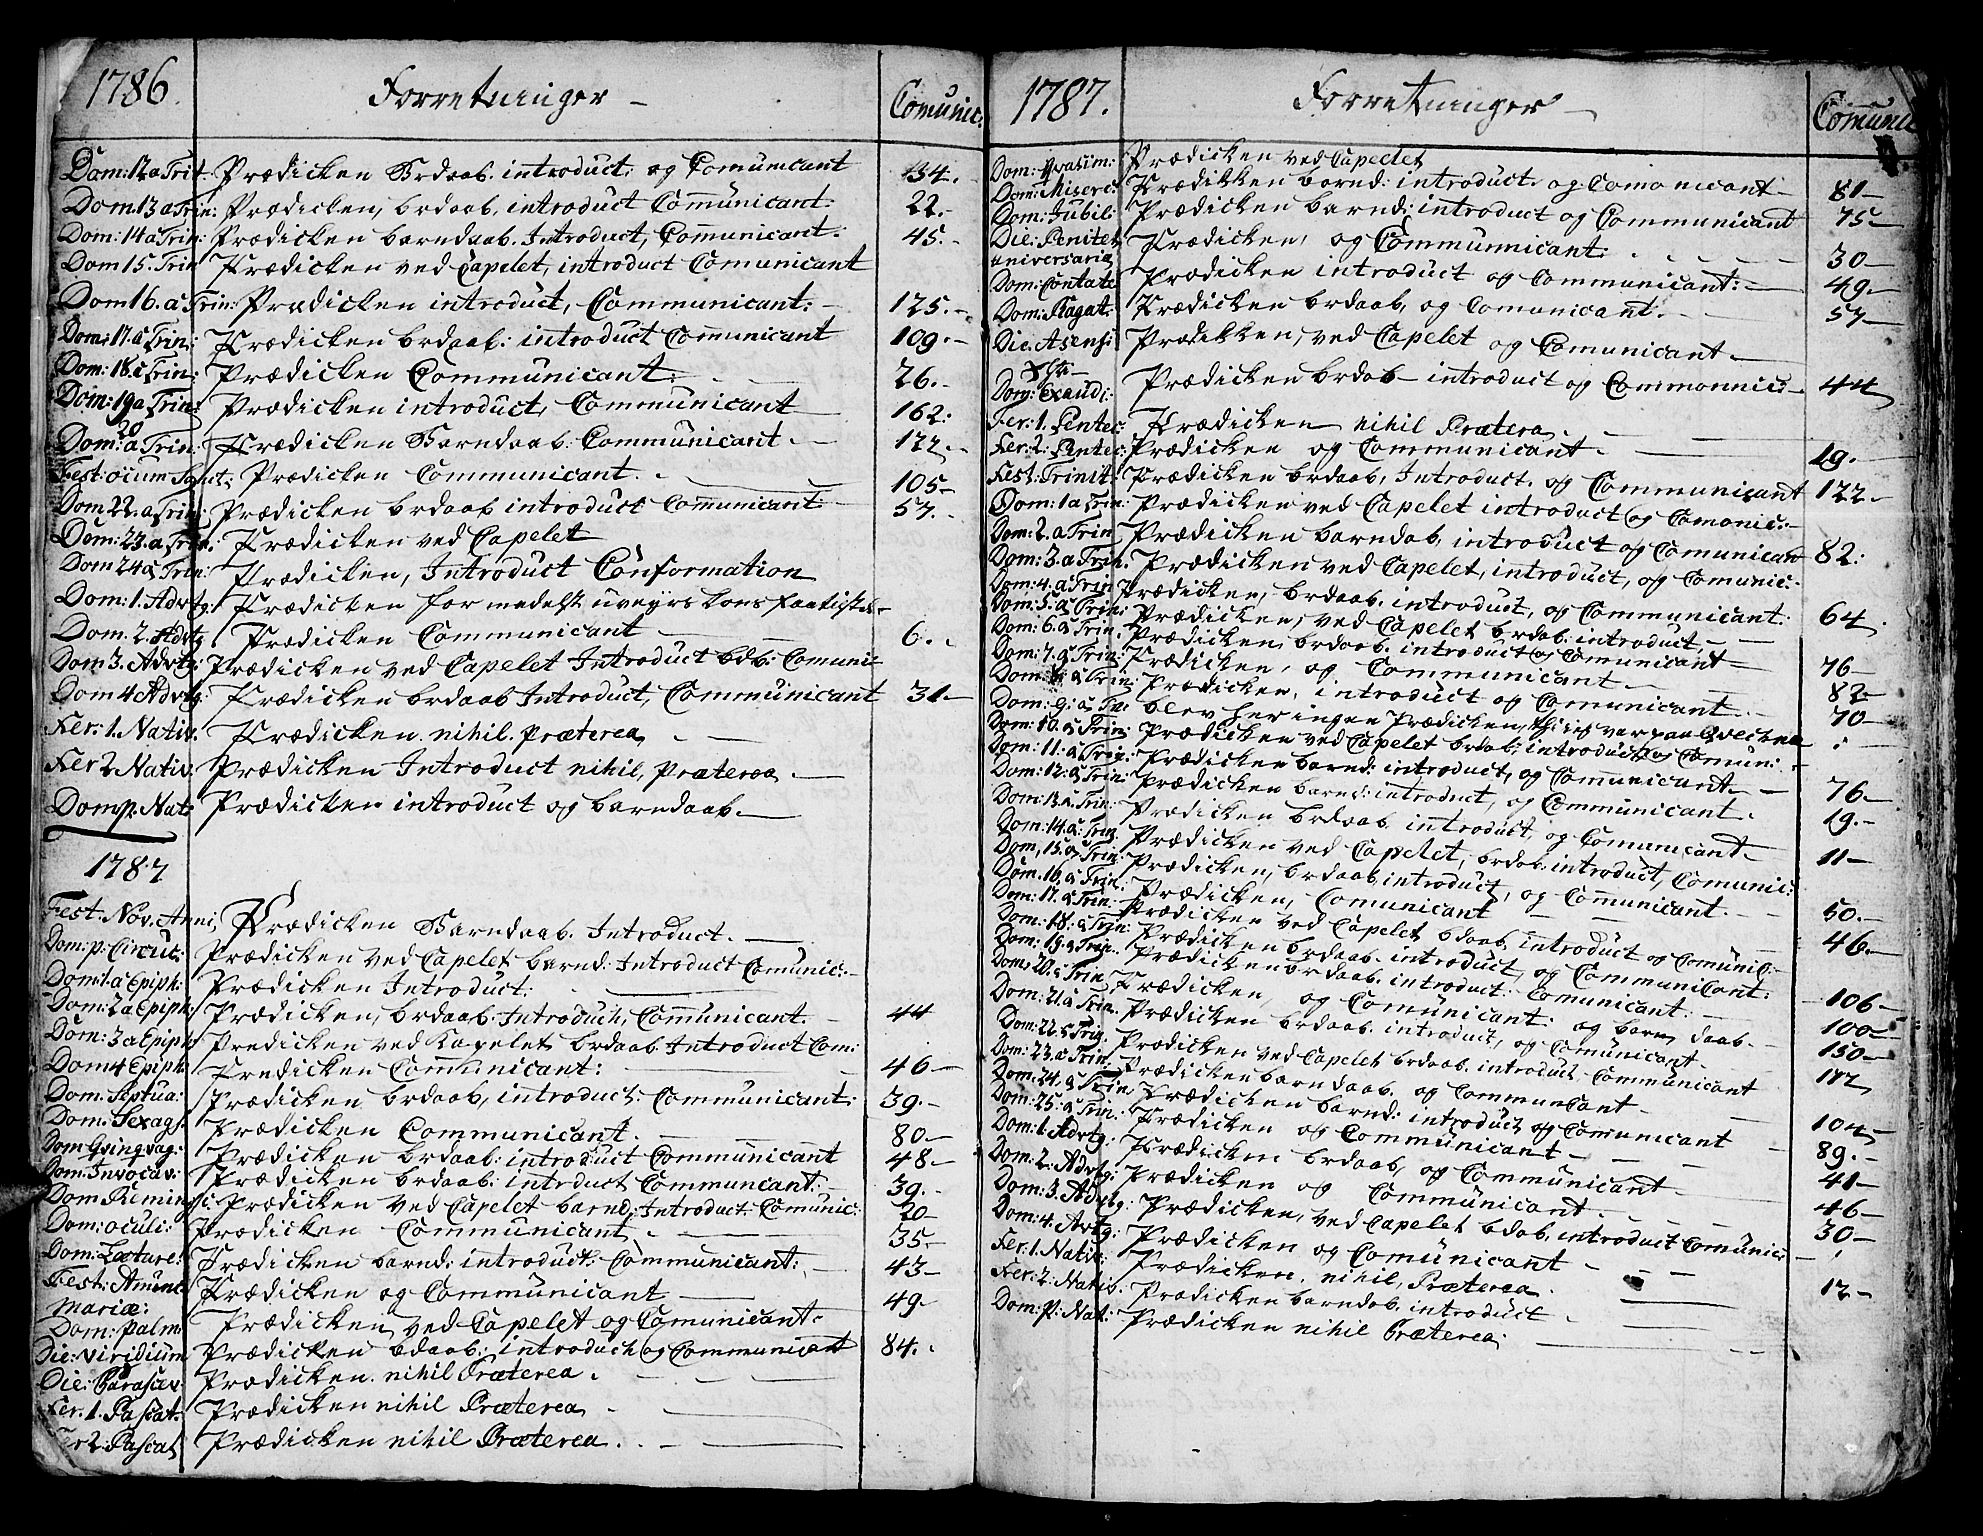 1786. Forretninger - Comunic:
Dom: 12 a Trit. Prædicken Brdaab. introduct: og Comunicant 134.
Dom. 13 a Trin: Prædicken, brdaab, introduct Communicant: 22.-
Dom: 14 a Trin: Prædicken barndaab. Introduct, Communicant: 45.-
Dom 15. Trin Prædicken ved Capelet, introduct Comunicant
Dom 16. a Trin: Prædicken introduct, Communicant: - 125.-
Dom: 17. a Trin: Prædicken brdaab: introduct Communicant 109.-
Dom: 18. a Trin: Prædicken Communicant: 26.-
Dom: 19 a Trin: Prædicken introduct, Communicant 162.
Dom: 20 a Trin: Prædicken Barndaab: Communicant. - 122.-
Fest: ocium Sanct: Prædicken Communicant. 105-
Dom 22. a Trin: Prædicken brdaab introduct Communicant 57.-
Dom: 23. a Trin: Prædicken ved Capelet
Dom 24 a Trin: Prædicken, Introduct Conformation
Dom: 1. Advtg: Prædicken formedelst uveyrs
Dom: 2. Advtg Prædicken Communicant 6.-
Dom 3. Advtg: Prædicken ved Capelet Introduct bdb: Comunic
Dom 4 Advtg: Prædicken brdaab Introduct, Communicant 31.-
Fer: 1. Nativ: Prædicken nihil. Præterea
Fer 2. Nativ: Prædicken Introduct nihil, præterea.
Dom p. Nat: Prædicken introduct og barndaab.
1787
Fest: Nov. Anni, Prædicken Barndaab. Introduct.
Dom: p. Circuc: Prædicken ved Capelet barnd: Introduct Comunic:
Dom: 1. a Epiph: Prædicken Introduct:
Dom: 2 a Epiph: Prædicken, brdaab. Introduct, Communicant. 44
Dom: 3 a Epiph: Predicken ved Kapelet brdaab. Introduct Com:
Dom 4 Epiph: Predicken Communicant: 46-
Dom: Septua: Prædicken brdaab, introduct: Communicant: 39.-
Dom: Sexags: Prædicken Communicant. 80-
Dom Qvingvag: Prædicken brdaab: introduct Communicant 48-
Dom: Invocav: Prædicken brdaab: introduct Communcant: 39.-
Dom. Reminisc: Prædicken ved Capelet barnd: Introduct: Comunic: 20
Dom: oculi: Prædicken Communicant. 35-
Dom: Lætare: Prædicken barnd: introduct: Communicant: 43-
Fest: Anunc Prædicken og Communicant 49.-
mariæ:
Dom: palm. Prædicken, ved Capelet og Comunicant.
Die: viridium Prædicken bdaab: introduct og Communicant 84.-
Die: Parascev: Prædicken. nihil Præterea.
Fer. 1. Pascat: Prædicken nihil Præterea
Fer 2. Pascat Prædicken nihil Præterea.
1787. Forretninger - Comunic
Dom: Qvasim: Prædicken ved Capelet
Dom: Miseric: Prædikken barnd: introduct og Comonicant 81-
Dom: Jubil: Prædicken barnd: introduct og Communicant 75-
Die: Penitet Prædicken, og Communnicant.
universaria 30-
Dom: Contate Prædicken introduct og Communicant: 49.-
Dom: Ragat: Prædicken brdaab, og Comunicant. 57-
Die. Asens: Prædikken, ved Capelet og Comunicant
Dom: Exaudi: Prædicken brdab- introduct og Communnic: 44
Fer: 1. Pentec: Prædicken nihil Prætera.
Fer: 2: Pentec: Prædicken og Communicant. 19.
Fest: Trinit: Prædicken brdaab, Introduct. og Communicant 122.-
Dom: 1 a Trin: Prædicken ved Capelet introduct og Comonic:-
Dom: 2. a Trin Prædicken barndab, introduct og Comunican 82:
Dom: 3. a Trin: Prædicken ved Capelet, introduct, og Comunic:
Dom: 4. a Trin Prædicken, brdaab. introduct, og Communicant. 64
Dom: 5. a Trin: Prædicken, ved Capelet brdab. introduct,
Dom: 6. a Trin. Prædicken, brdaab. introduct og Comunicant 76-
Dom: 7. a Trin: Prædicken, og Communicant 82-
Dom: 8: a Trin: Prædicken, introduct og Comunicant. 70-
Dom: 9: a Tri: blev her ingen Prædicken,
Dom: 10. a Trin: Prædicken ved Capelet brdab, introduct og Comuni:
Dom: 11. a Trin: Prædicken barnd: introduct, og Communicant. 76-
Dom: 12: a Trin: Prædicken barnd: introduct, og Communicant. 19.-
Dom: 13 a Trin: Prædicken brdaab introduct, og Comunicant. 11-
Dom: 14. a Trin. Prædicken ved Capelet, brdab: introduct, Comunic:
Dom, 15. a Trin: Prædicken, brdaab introduct, og Communicant. 50.-
Dom. 16. a Trin. Prædicken, Comunicant 46.-
Dom: 17. a Trin: Prædicken ved Capelet bdaab. introduct og Comunic:
Dom: 18. a Trin: Prædicken brdaab. introduct, og Communicant: 106-
Dom: 19. a Trin. Prædicken brdaab. introduct. Comunicant. 100-
Dom: 20. a Trin Prædicken, og Comunicant. og barn daab. 150-
Dom: 21. a Trin. Prædicken brdaab. introduct, og Comunicant 112
Dom: 22. a Trig. Prædicken ved Capelet brdaab. introduct Communicant
Dom: 23. a Trin Prædicken barndaab. og Communcant 104
Dom. 24. a Trin. Prædicken barnd: introduct og Comunicant 89.-
Dom: 25: a Trin: Prædicken og Communicant. 41-
Dom: 1. Advtg: Prædicken brdaab, og Communicant 46-
Dom: 2. Advtg: Prædicken og Communicant. 30-
Dom: 3. Advtg: Prædicken, ved Capelet bdab. introduct Comunic:
Dom: 4. Avtg: Prædicken og Comunicant 12-
Fer. 1. Nativ: Prædicken. nihil, Præterea.
Fer: 2: Nativ. Prædicken barndab. introduct
Dom: P: Nat: Prædicken nihil Præterea: